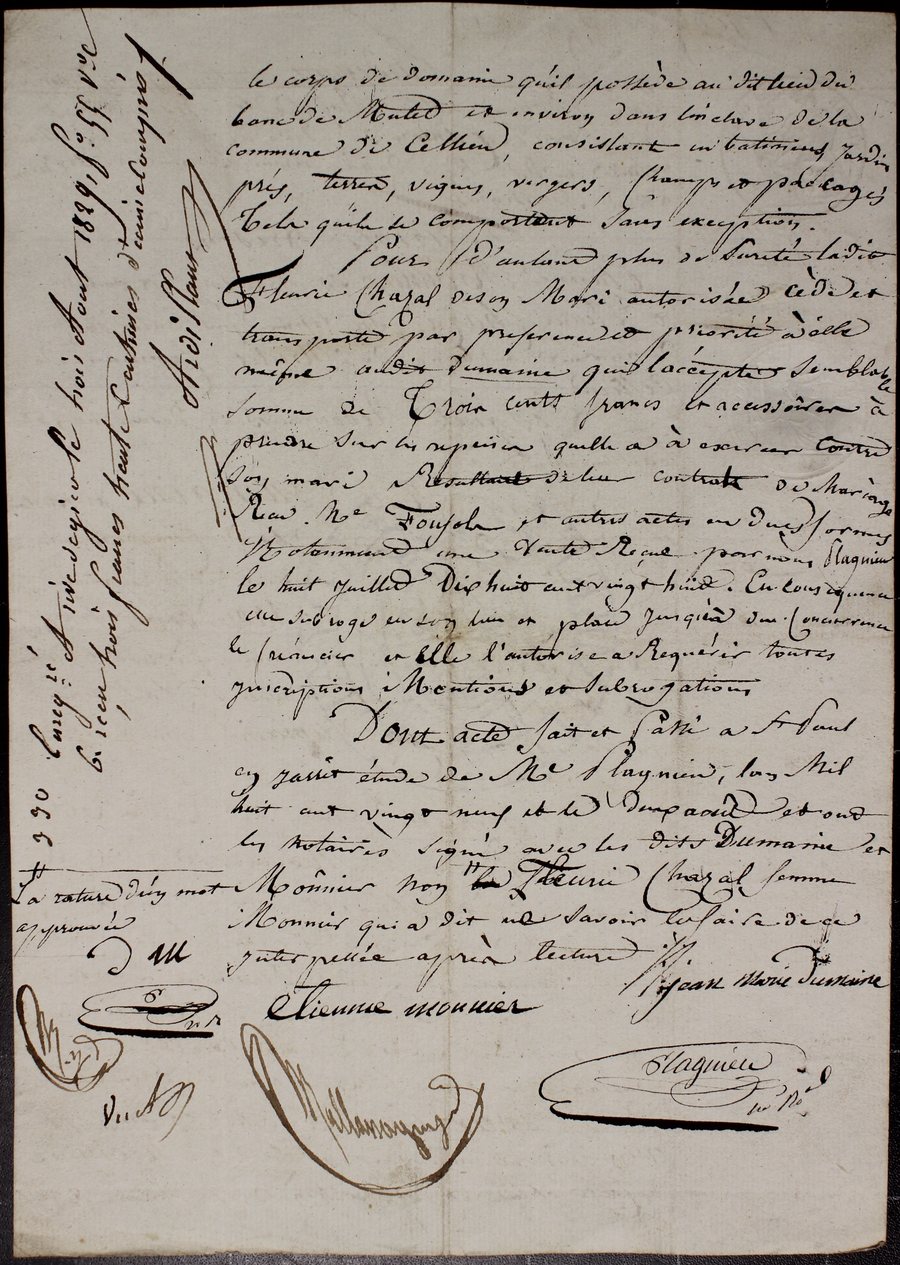 le corps de domaine qu'il possède au dit lieu du
banc de Mulet et environ dans l'inclave de la
commune de Cellieu, consistant en batiments jardin
prés, terres, vignes, vergers, champs et paccages
Tels qu'ils se comportent sans exception.
Pour d'autant plus de sureté ladite
Fleurie Chazal de son Mari autorisée cède et
transporte par preference et priorité à elle
même audit Dumaine qui l'accepte semblable
somme de Trois cents francs et accessoires à
prendre sur les reprises quelle a à exercer contre
son mari Résultant de leur contrat de Mariage
Recu Me et autres actes en dues formes
Notamment une vente Reçue par nous Plagnieu
le huit juillet Dix huit cent vingt huit. En consequence
elle subroge en son lieu et place jusqu'à due Concurrence
le Créancier et Elle l'autorise a Requérir toutes
inscriptions Mentions et subrogations
Dont acte fait et Passé a St Paul
en jarret étude de Me Plagnieu, l'an Mil
huit cent vingt neuf et le deux août et ont
les notaires signé avec les dits Dumaine et
Monnier non la Fleurie Chazal femme
Monnier qui a dit ne savoir le faire de ce
interpellée après lecture
jean marie Dumaine
etienne monnier
Plagnieu
La rature d'un mot
approuvée
D M
990 Enregtré A rivedegier le trois Aout 1829, fo 55 Vo
reçu trois francs trente centimes decime compris